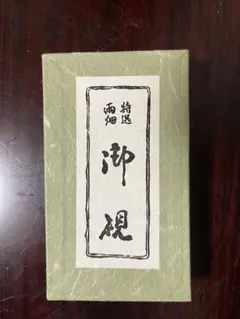 特選
雨畑
御硯